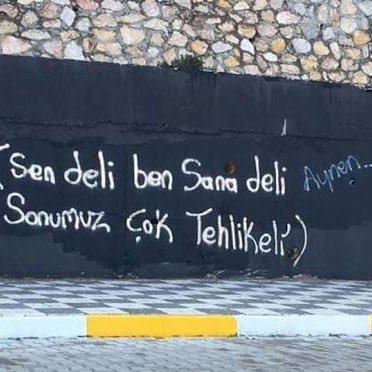 (Sen deli ben Sana deli Aynen...
Sonumuz çok Tehlikeli)